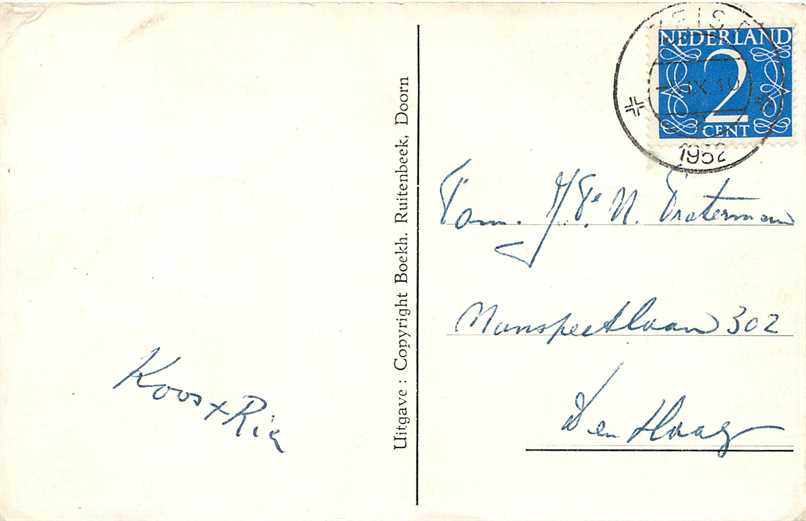 NEDERLAND
2
CENT
1952
Fam.
Nunspeetlaan 302
Den Haag
Koos + Ria
Uitgave : Copyright Boekh. Ruitenbeek, Doorn